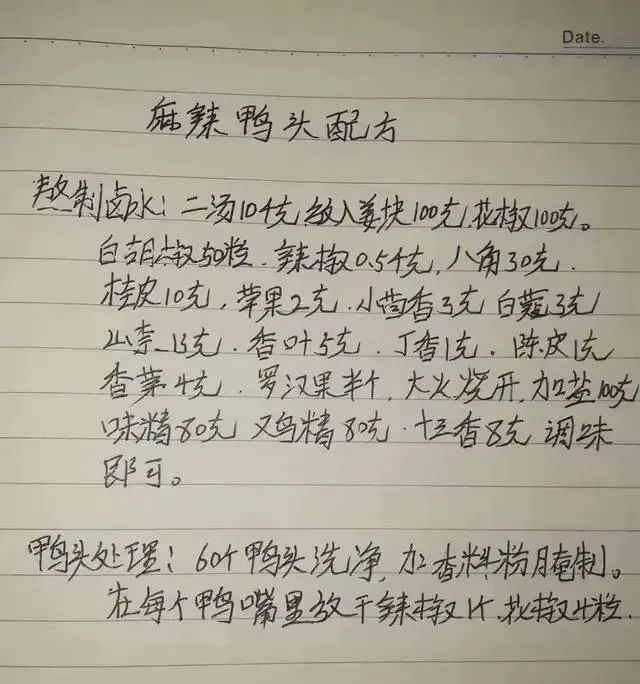 Date.
麻辣鸭头配方
熬制卤水：二汤10千克，放入姜块100克，花椒100克。
白胡椒50粒．辣椒0.5千克，八角30克．
桂皮10克，草果2克．小茴香3克 白蔻3克
山奈 13克．香叶5克．丁香1克．陈皮1克
香茅4克．罗汉果半个，大火烧开，加盐100克
味精80克 鸡精80克．十三香8克 调味
即可。
鸭头处理：60个鸭头洗净，加香料粉腌制。
在每个鸭嘴里放干辣椒1个，花椒4粒．